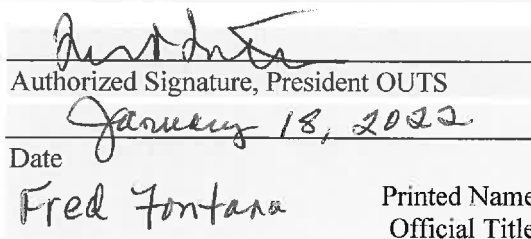 Authorized Signature, President OUTS
January 18, 2022
Date
Fred Fontana Printed Name
Official Title